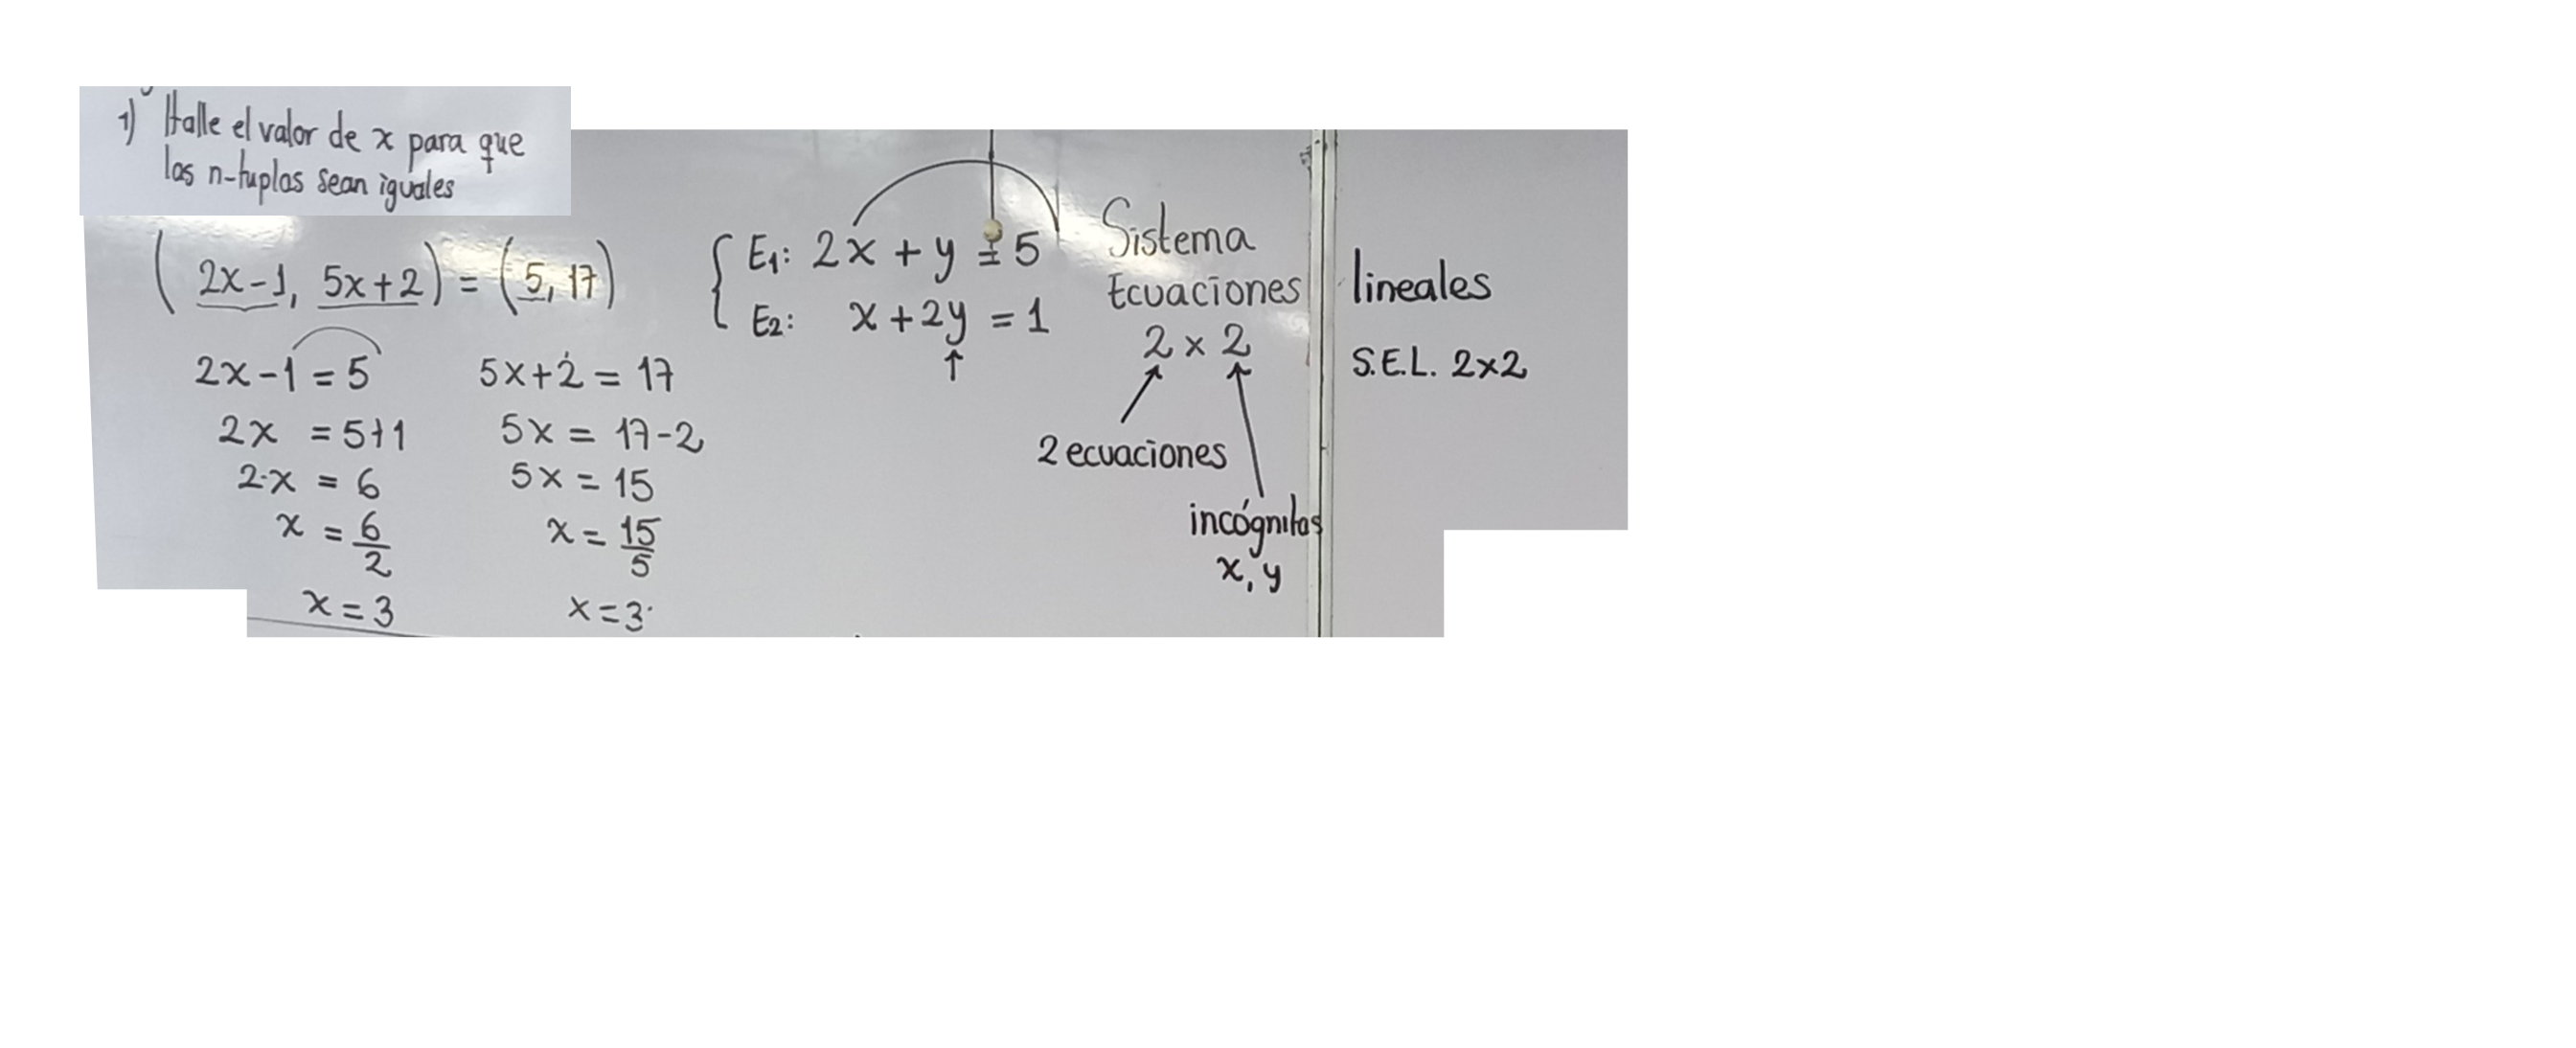 1) Halle el valor de x para que
las n-tuplas sean iguales
(2x-1, 5x+2) = (5, 17)
2x-1 = 5
2x = 5+1
2·x = 6
x = 6/2
x = 3
5x+2 = 17
5x = 17-2
5x = 15
x = 15/5
x = 3
{ E1: 2x + y = 5
E2: x + 2y = 1
↑
Sistema
Ecuaciones lineales
2 x 2
S.E.L. 2x2
2 ecuaciones
incógnitas
x, y